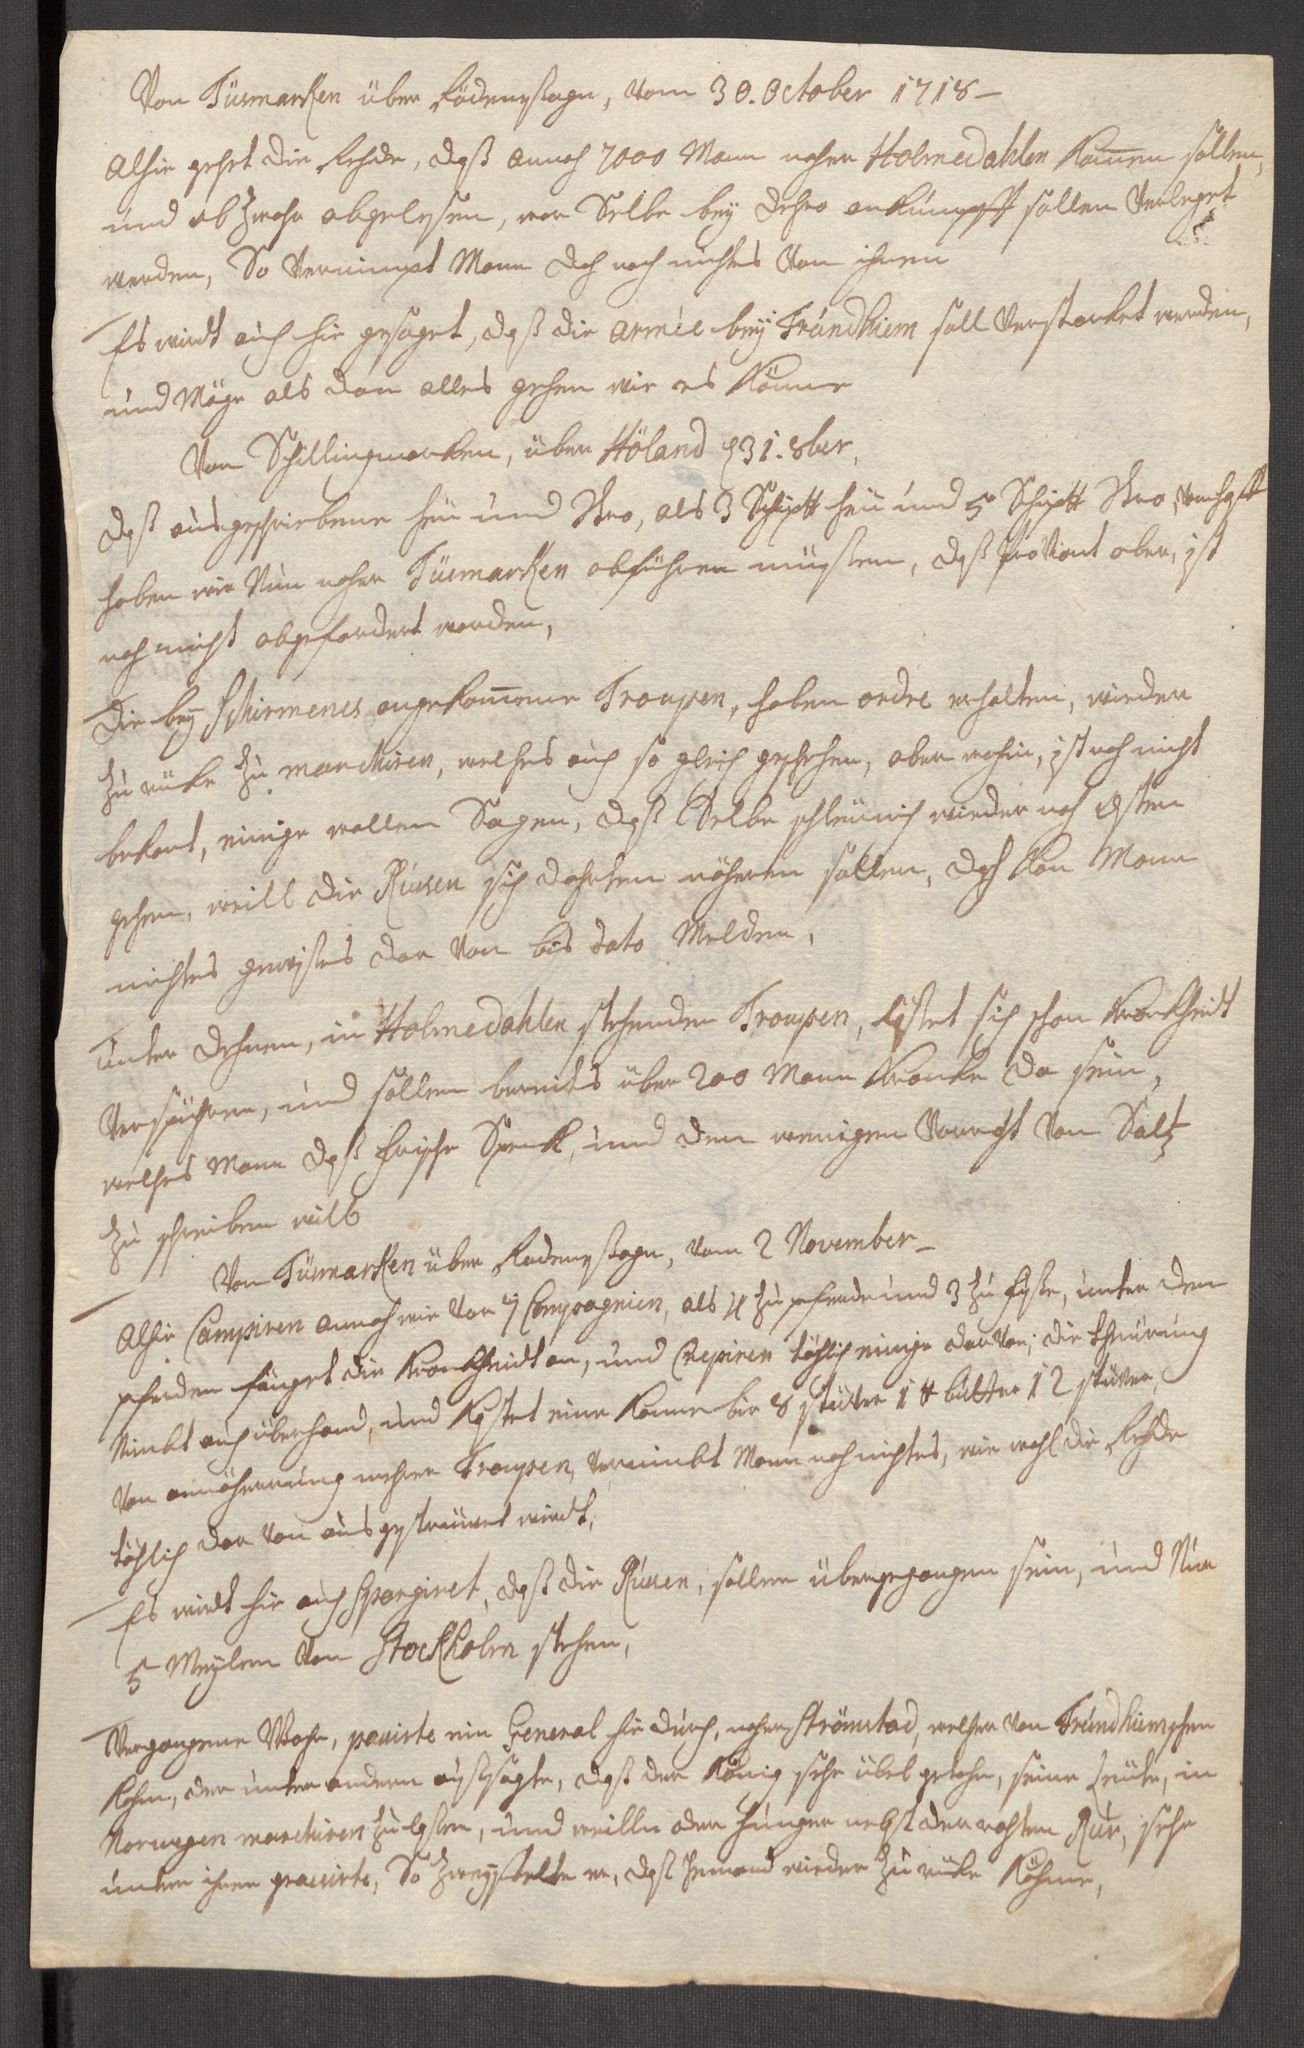 Von Tüsmarken über Rödenæßsogn, vom 30. October 1718 –
Alhie gehet die Rehde, daß annoch 7000 Mann naher Holmedahlen kom̅en sollen,
und ob zwahr abgelesen, wor Selbe bey dehro ankunfft sollen Verleget
werden, So Vernimpt Mann doch noch nichtes Von ihnen
Es wirdt auch hie gesaget, daß die Armée bey Trundhiem soll Verstarket werden,
und Möge als dan alles gehen wie es könne
Von Schillingmarken, über Höland d 31. 8ber,
daß ausgeschriebene heü und Stro, als 3 Schip℔ heü und 5 Schip℔ Stro,
haben wir Nun naher Tüsmarken abführen müssen, daß Proviant aber, ist
noch nicht abgefordert worden,
Die bey Schirmenes angekom̅ene Troupen, haben ordre erhalten, wieder
zu rüke zu marchiren, welches auch so gleich geschehen, aber wohin, ist noch nicht
bekant, einige wollen Sagen, daß Selbe schleünich wieder nach Osten
gehen, weill die Russen sich dahrten näheren sollen, doch kan Mann
nichtes gewißes dar Von bis dato Melden,
Unter dehnen, in Holmedahlen stehenden Troupen, läßet sich schon krankheidt
Verspühren, und sollen bereits über 200 Mann kranke da sein,
welches Mann daß frische Speck, und den wenigen Vorraht Von Saltz
zu schreiben will
Von Tüsmarken über Rödenæßsogn, vom 2 November –
Alhie Campiren annoch wie Vor 7 Compagnien, als 4 zu pferde und 3 zu fuße, unter den
pferden fänget die krankheidt an, und Crepiren tählich einige dar Von, die theürung
Nimbt auch überhand, und kostet eine kanne bier 8 stüver 1 ℔ butter 12 stüver,
Von annäherrung mehrer Troupen, Vernimbt Mann noch nichtes, wie wohl die Rehde
tählich dar Von ausgestreüwet wirdt,
Es wirdt hie auch Spargiret, daß die Russen, sollen übergegangen sein, und Nur
5 Meylen Von Stockholm stehen,
Vergangene Woche, passirte ein General hie durch, naher Strömstad, welcher von Trundhiemschen
kahm, der unter andern aussagte, daß der König sehr übel gethan, seine Leüte, in
Norwegen marchiren zu laßen, und weilln der hunger nebst der rohten Rur, sehr
unter ihnen grassirte, So zweiffelte er, daß Jemand wieder zu rüke kähme,